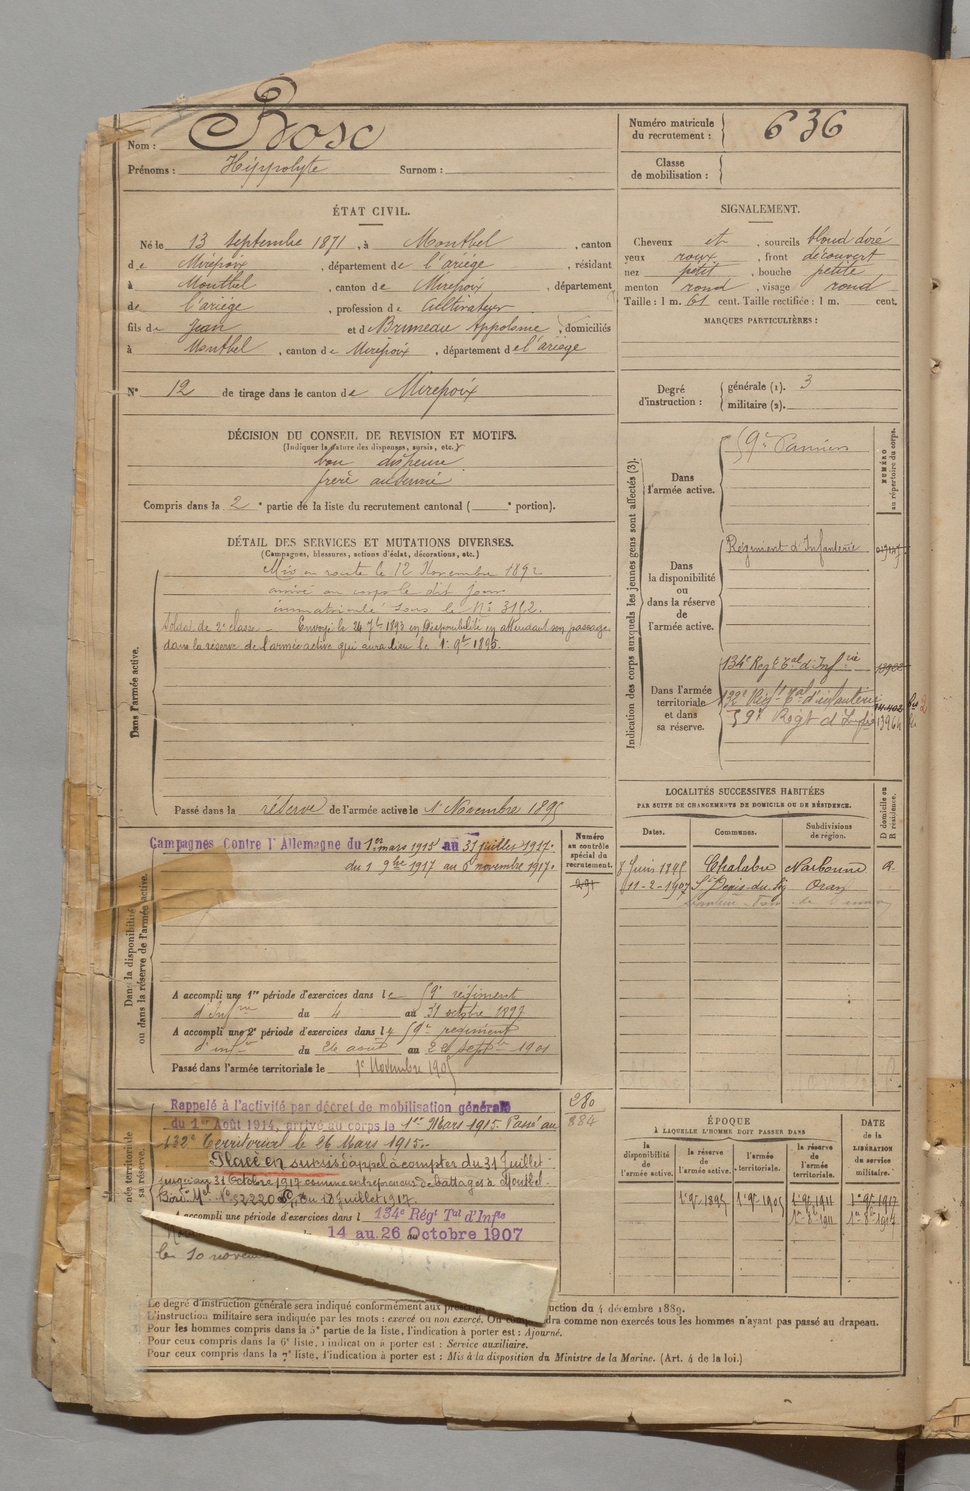 Nom : Bosc
Prénoms : Hippolyte Surnom :
Numéro matricule du recrutement : 636
Classe de mobilisation :
ÉTAT CIVIL.
Né le 13 septembre 1871, à Montbel, canton
de Mirepoix, département de l'ariège, résidant
à Montbel, canton de Mirepoix, département
de l'ariège, profession de Cultivateur
fils de Jean et de Bruneau Appolonie, domiciliés
à Montbel, canton de Mirepoix, département de l'ariège
N° 12 de tirage dans le canton de Mirepoix
SIGNALEMENT.
Cheveux et, sourcils blond doré
yeux roux, front découvert
nez petit, bouche petite
menton rond, visage rond
Taille : 1 m. 61 cent. Taille rectifiée : 1 m. cent.
MARQUES PARTICULIÈRES :
Degré d'instruction : générale (1). 3
militaire (2).
DÉCISION DU CONSEIL DE REVISION ET MOTIFS.
(Indiquer la nature des dispenses, sursis, etc.)
bon dispensé
Compris dans la 2e partie de la liste du recrutement cantonal ( e portion).
DÉTAIL DES SERVICES ET MUTATIONS DIVERSES.
(Campagnes, blessures, actions d'éclat, décorations, etc.)
Dans l'armée active.
Mis en route le 12 Novembre 1892
arrivé au corps le dit jour
immatriculé sous le N° 3152.
Soldat de 2e classe. Envoyé le 24 7bre 1893 en Disponibilité en attendant son passage
dans la réserve de l'armée active qui aura lieu le 1er 9bre 1895.
Passé dans la réserve de l'armée active le 1er Novembre 1895
Indication des corps auxquels les jeunes gens sont affectés (3).
NUMÉRO au répertoire du corps.
Dans l'armée active. 59e Pamiers
Dans la disponibilité ou dans la réserve de l'armée active. Régiment d'Infanterie
Dans l'armée territoriale et dans sa réserve. 134e Regt Tal d'Infrie
132e Régt Tal d'infanterie
59e Régt d'Infie 13964
LOCALITÉS SUCCESSIVES HABITÉES
PAR SUITE DE CHANGEMENTS DE DOMICILE OU DE RÉSIDENCE.
Dates. Communes. Subdivisions de région. D domicile ou R résidence.
8 Juin 1895 Chalabre Narbonne R.
11-2-1907 St Denis-du-Sig Oran
Dans la disponibilité ou dans la réserve de l'armée active.
Numéro au contrôle spécial du recrutement.
291
Campagnes Contre l'Allemagne du 1er mars 1915 au 31 juillet 1917.
du 1 9bre 1917 au 6 novembre 1917.
A accompli une 1re période d'exercices dans le 59e régiment
d'Infrie du 4 au 31 octobre 1897
A accompli une 2e période d'exercices dans le 59e régiment
d'infrie du 26 août au 22 septbre 1901
Passé dans l'armée territoriale le 1er Novembre 1905
Rappelé à l'activité par décret de mobilisation générale
du 1er Août 1914, arrivé au corps le 1er Mars 1915. Passé au
132e Territorial le 26 Mars 1915.
Placé en sursis d'appel à compter du 31 Juillet
jusqu'au 31 Octobre 1917 comme entrepreneur de battages à Montbel.
N° 52220 du 18 juillet 1917.
accompli une période d'exercices dans l 134e Régt Tal d'Infie
14 au 26 Octobre 1907
le 10 novem
280
884
ÉPOQUE
À LAQUELLE L'HOMME DOIT PASSER DANS
la disponibilité de l'armée active. la réserve de l'armée active. l'armée territoriale. la réserve de l'armée territoriale.
DATE de la LIBÉRATION du service militaire.
1er 9bre 1895 1er 9bre 1905 1er 9bre 1911 1er 9bre 1917
1er 8bre 1911 1er 8bre 1917
Le degré d'instruction générale sera indiqué conformément aux prescrip uction du 4 décembre 1889.
L'instruction militaire sera indiquée par les mots : exercé ou non exercé. On comp dra comme non exercés tous les hommes n'ayant pas passé au drapeau.
Pour les hommes compris dans la 5e partie de la liste, l'indication à porter est : Ajourné.
Pour ceux compris dans la 6e liste, l'indication à porter est : Service auxiliaire.
Pour ceux compris dans la 7e liste, l'indication à porter est : Mis à la disposition du Ministre de la Marine. (Art. 4 de la loi.)